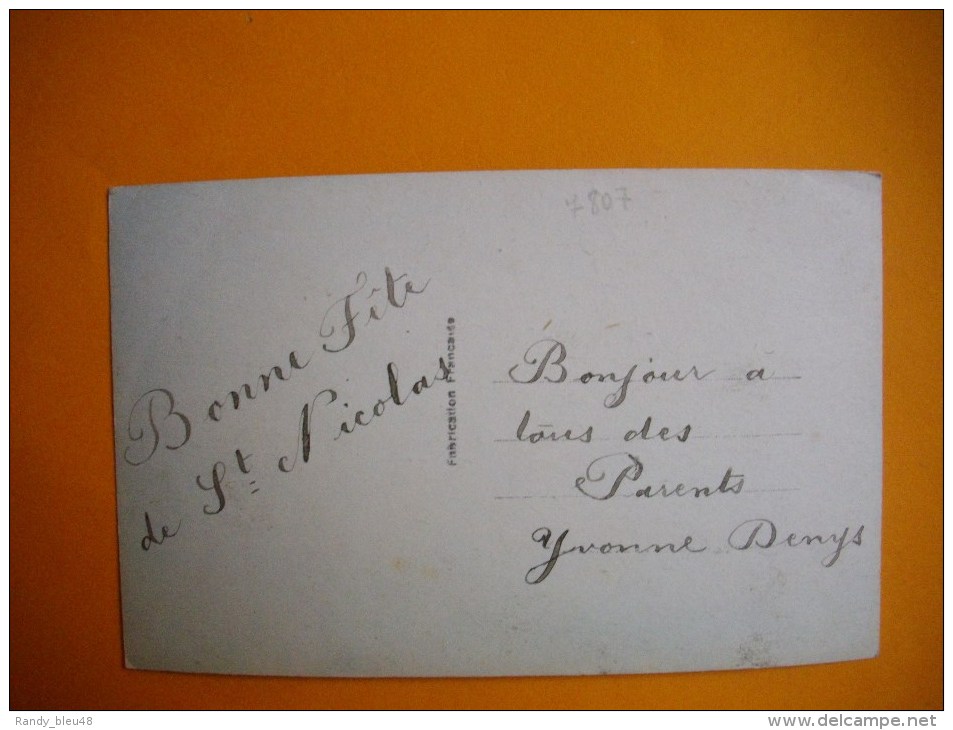 7807
Bonne Fête
de St Nicolas
Fabrication Française
Bonjour à
tous des
Parents
Yvonne Denys
Randy_bleu48
www.delcampe.net